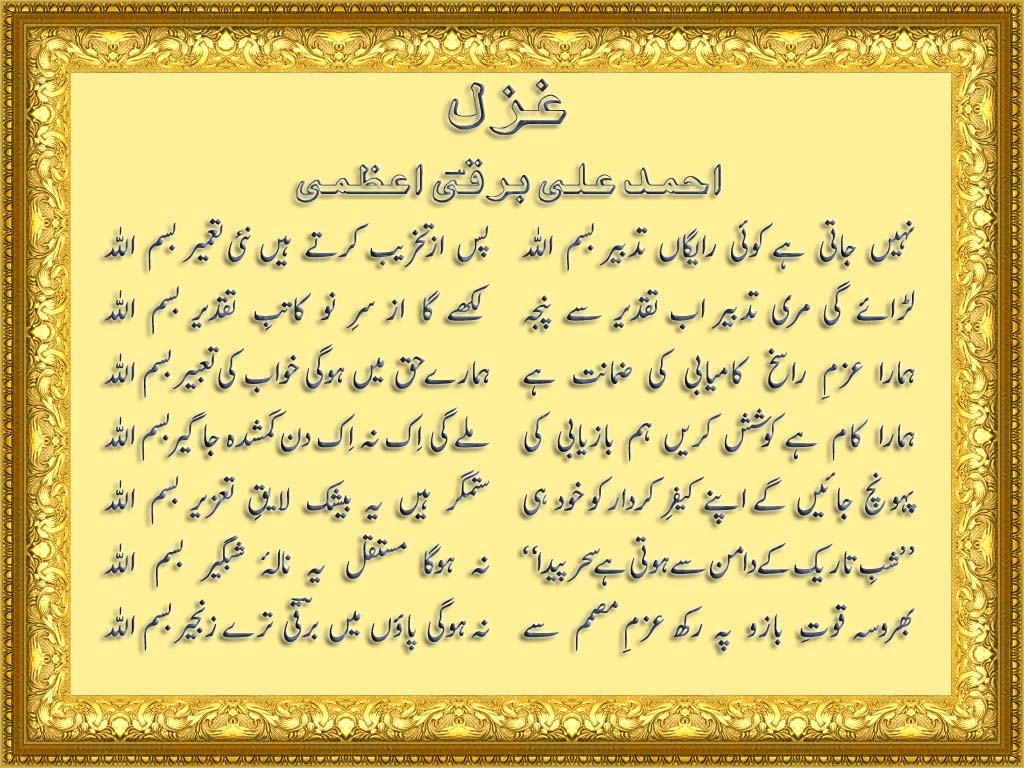 غزل
احمد علی برقیؔ اعظمی
نہیں جاتی ہے کوئی رایگاں تدبیر بسم اللہ پس از تخریب کرتے ہیں نئی تعمیر بسم اللہ
لڑائے گی مری تدبیر اب تقدیر سے پنجہ لکھے گا از سرِ نو کاتبِ تقدیر بسم اللہ
ہمارا عزمِ راسخ کامیابی کی ضمانت ہے ہمارے حق میں ہوگی خواب کی تعبیر بسم اللہ
ہمارا کام ہے کوشش کریں ہم بازیابی کی ملے گی اِک نہ اِک دن گمشدہ جاگیر بسم اللہ
پہونچ جائیں گے اپنے کیفرِ کردار کو خود ہی ستمگر ہیں یہ بیشک لایقِ تعزیر بسم اللہ
”شبِ تاریک کے دامن سے ہوتی ہے سحر پیدا“ نہ ہوگا مستقل یہ نالۂ شبگیر بسم اللہ
بھروسہ قوتِ بازو پہ رکھ عزمِ مصمم سے نہ ہوگی پاؤں میں برقیؔ ترے زنجیر بسم اللہ